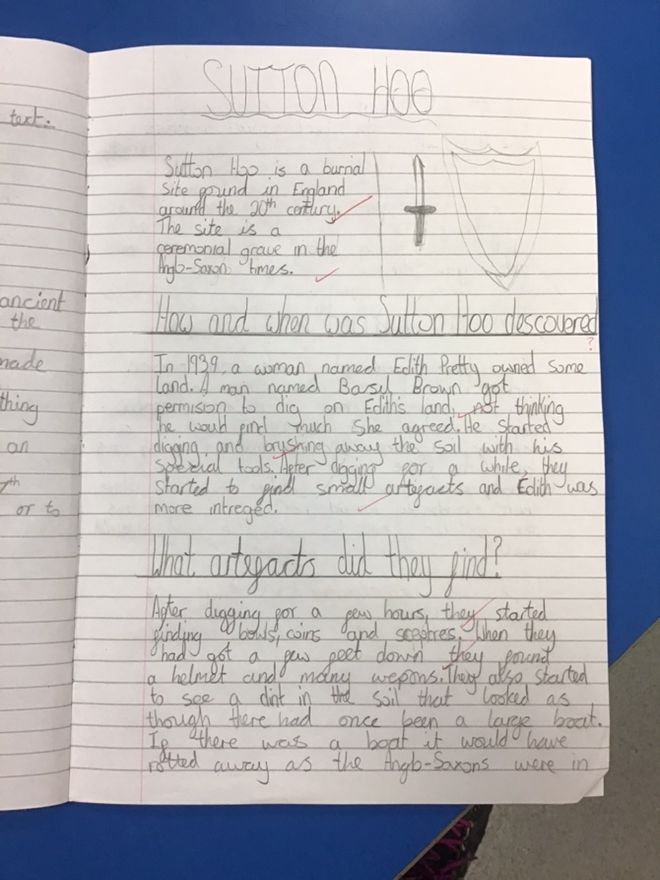 text:
ancient
the
made
thing
an
7th
or to
SUTTON HOO
Sutton Hoo is a burial
site found in England
around the 20th century.
The site is a
ceremonial grave in the
Anglo-Saxon times.
How and when was Sutton Hoo descovered
?
In 1939, a woman named Edith Pretty owned some
land. A man named Basil Brown got
permision to dig on Edith's land, not thinking
he would find much she agreed. He started
digging and brushing away the soil with his
special tools. After digging for a while, they
started to find small artefacts and Edith was
more intreged.
What artefacts did they find?
After digging for a few hours, they started
finding bowls, coins and sceptres. When they
had got a few feet down they found
a helmet and many wepons. They also started
to see a dint in the soil that looked as
though there had once been a large boat.
If there was a boat it would have
rotted away as the Anglo-Saxons were in